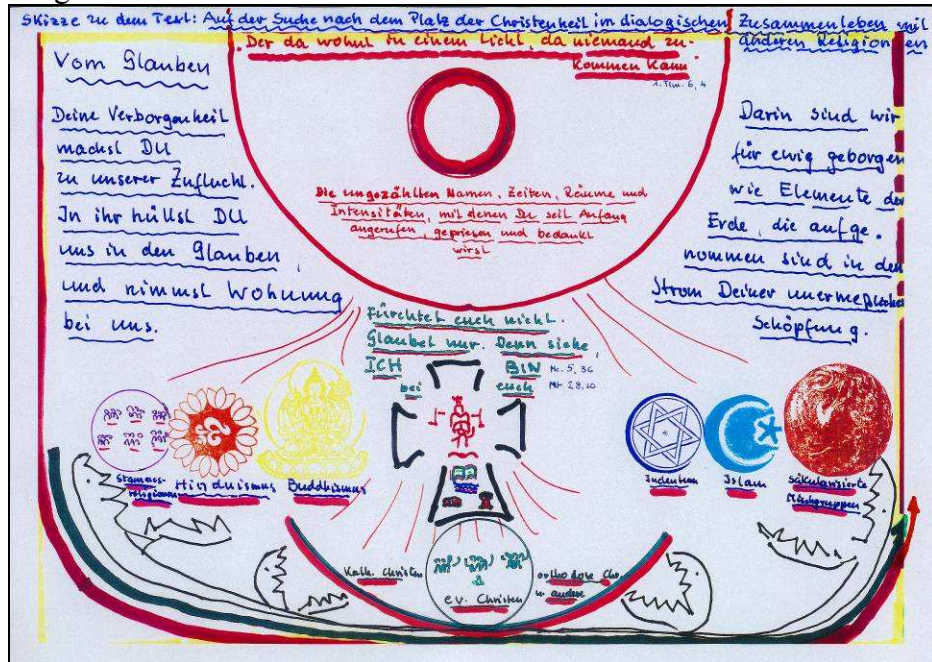 Skizze zu dem Text: Auf der Suche nach dem Platz der Christenheit im dialogischen Zusammenleben mit
anderen Religionen
Der da wohnt in einem Licht, da niemand zu-
kommen kann
1. Tim. 6, 4
Vom Glauben
Deine Verborgenheit
machst DU
zu unserer Zuflucht.
In ihr hüllst DU
uns in den Glauben,
und nimmst Wohnung
bei uns.
Die ungezählten Namen, Zeiten, Räume und
Intensitäten, mit denen Du seit Anfang
angerufen, gepriesen und bedankt
wirst
Darin sind wir
für ewig geborgen
wie Elemente der
Erde, die aufge-
nommen sind in den
Strom Deiner unermeßlichen
Schöpfung.
Fürchtet euch nicht.
Glaubet nur. Denn siehe,
ICH BIN Mc. 5, 36
bei euch Mt. 28,20
Stammes-
religionen
Hinduismus
Buddhismus
Judentum
Islam
säkularisierte
Mischgruppen
Kath. Christen
ev. Christen
orthodoxe Chr.
u. andere